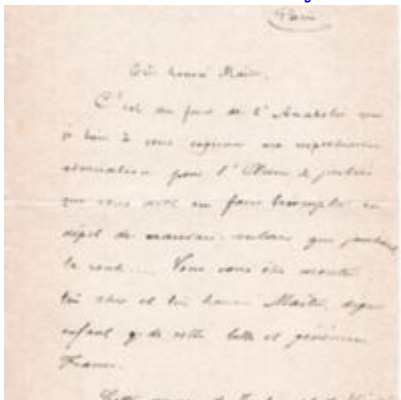 Paris
Très honoré Maître,
C'est du fond de l'Anatolie que
je tiens à vous exprimer ma respectueuse
admiration pour l'Œuvre de justice
que vous avez su faire triompher en
dépit de mauvais vouloirs que
la Vous vous êtes montré
très cher et très honoré Maître, digne
enfant de cette belle et généreuse
France.
Cette